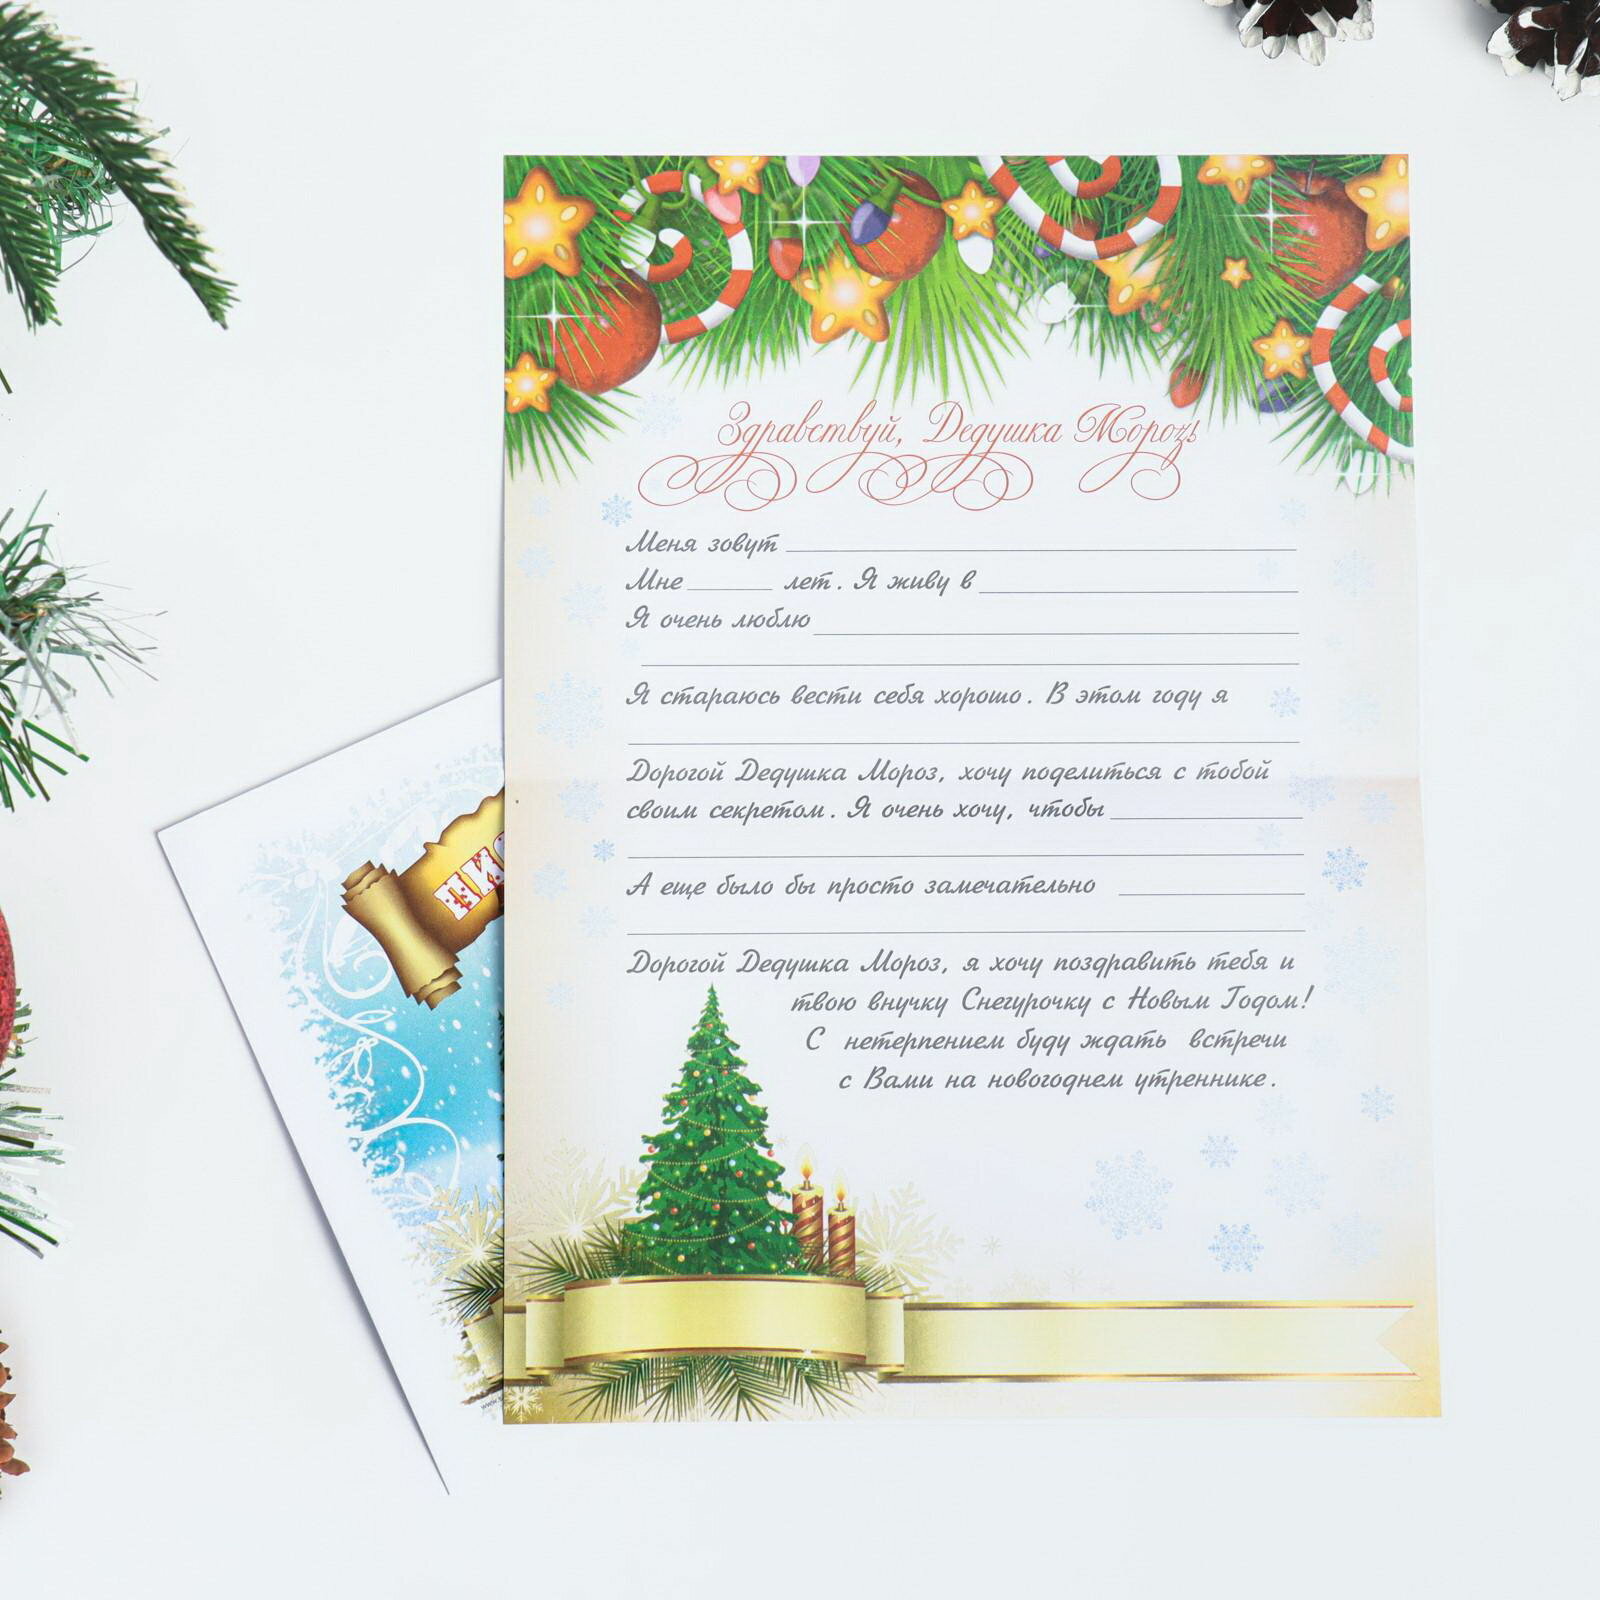 Здравствуй, Дедушка Мороз!
Меня зовут
Мне лет. Я живу в
Я очень люблю
Я стараюсь вести себя хорошо. В этом году я
Дорогой Дедушка Мороз, хочу поделиться с тобой
своим секретом. Я очень хочу, чтобы
А еще было бы просто замечательно
Дорогой Дедушка Мороз, я хочу поздравить тебя и
твою внучку Снегурочку с Новым Годом!
С нетерпением буду ждать встречи
с Вами на новогоднем утреннике.